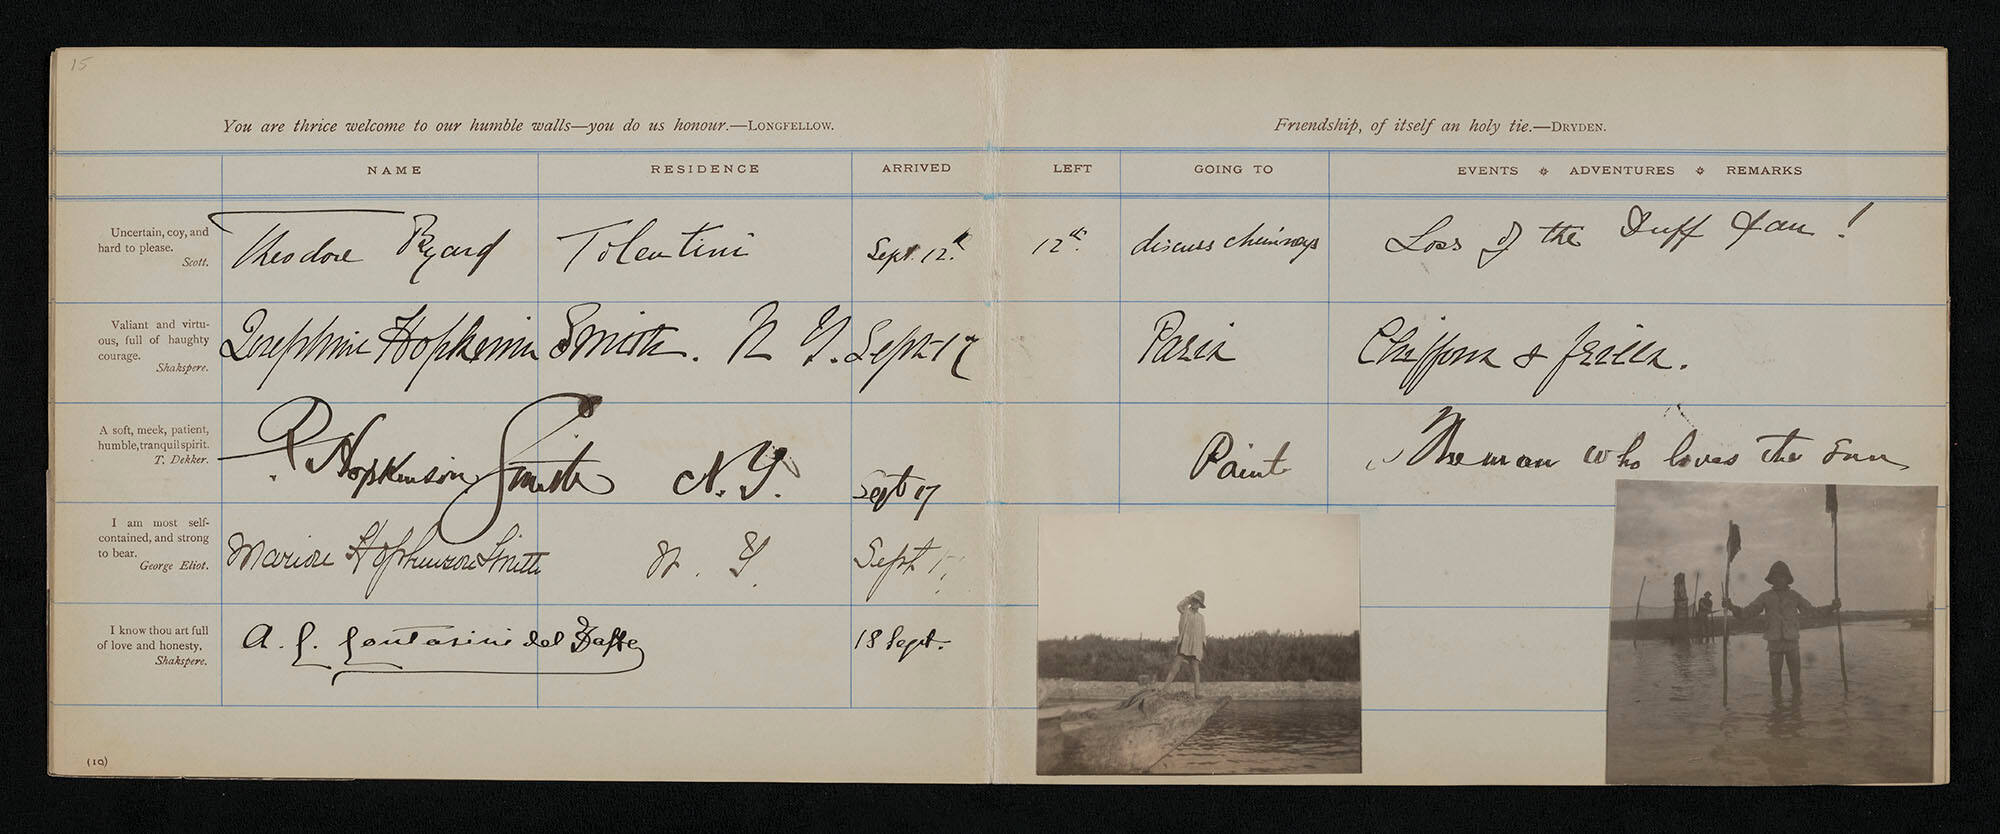 15
You are thrice welcome to our humble walls—you do us honour.—LONGFELLOW.
Friendship, of itself an holy tie.—DRYDEN.
NAME RESIDENCE ARRIVED LEFT GOING TO EVENTS ADVENTURES REMARKS
Uncertain, coy, and
hard to please.
Scott.
Theodore Tolentini Sept. 12th 12th discuss chimneys Loss of the Duff Fan!
Valiant and virtu-
ous, full of haughty
courage.
Shakspere.
Josephine Hopkinson Smith. N Y. Sept 17 Paris Chiffons & frills.
A soft, meek, patient,
humble, tranquil spirit.
T. Dekker.
Hopkinson Smith N.Y. Sept 17 Paint The man who loves the sun
I am most self-
contained, and strong
to bear.
George Eliot.
Marion Hopkinson Smith N. Y. Sept 17
I know thou art full
of love and honesty.
Shakspere.
A. G. del 18 Sept.
(10)